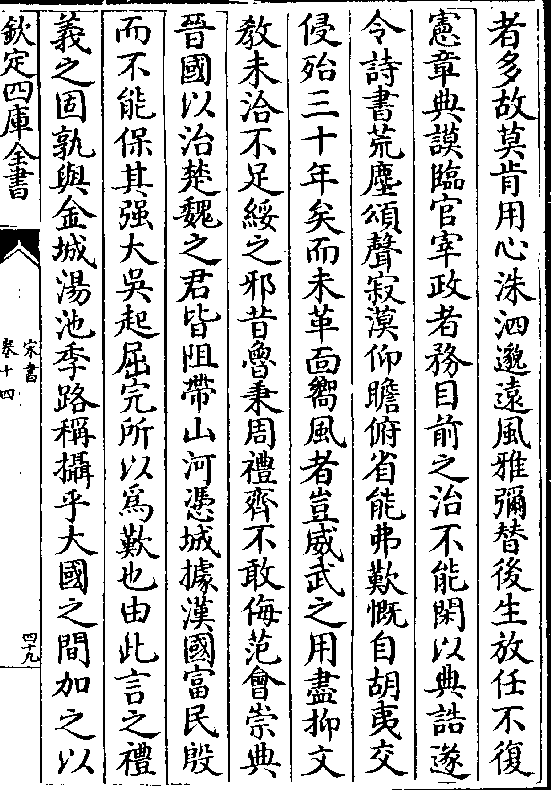 者多故莫肯用心洙泗邈遠風雅彌替後生放任不復
憲章典謨臨官宰政者務目前之治不能閑以典誥遂
令詩書荒塵頌聲寂漠仰瞻俯省能弗歎慨自胡夷交
侵殆三十年矣而未革面嚮風者豈威武之用盡抑文
敎未洽不足綏之邪昔魯秉周禮齊不敢侮范會崇典
晉國以治楚魏之君皆阻帶山河憑城據漢國富民殷
而不能保其强大吳起屈完所以爲歎也由此言之禮
義之固孰與金城湯池季路稱攝乎大國之間加之以
欽定四庫全書
宋書
卷十四
四十九